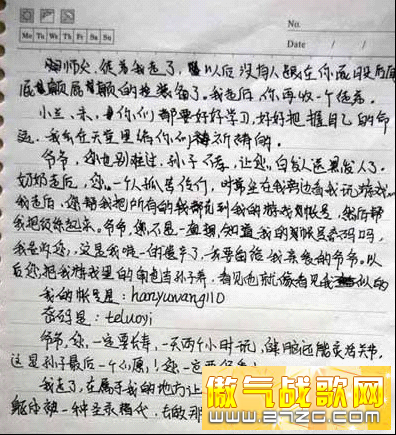 No.
Mo Tu We Th Fr Sa Su
Date / /
师父，徒弟我走了，以后没有人跟在你屁股后面
屁颠屁颠的捡装备了。我走后，你再收一个徒弟。
小兰、你们都要好好学习，好好把握自己的命
运。我会在天堂里给你们祈祷的。
爷爷，您也别难过，孙子不孝，让您"白发人送黑发人了。
奶奶走后，您一个人孤苦伶仃，时常坐在我旁边看我玩游戏
我走后，您帮我把所有的钱都充到我的游戏帐号，然后帮
我把。爷爷，您不是一直想知道我的帐号密码吗，
我告诉您，这是我唯一的遗产了，我要留给我亲爱的爷爷。以
后您把我游戏里的角色当孙子养，看见他就像看见我似的
我的帐号是：hanyuwang110
密码是：teluoyi
爷爷，您一定要长寿，一天两个小时玩，健脑还能灵活关节，
这是孙子最后一个心愿，！您一定要
我走了，在属于我的地方让
能够被一种去
傲气战歌网
www.27ZC.com